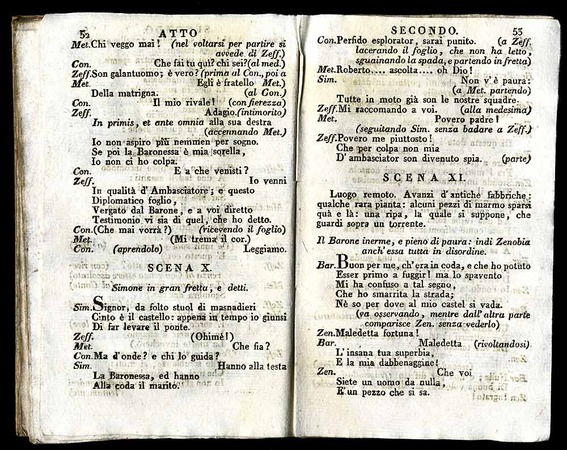 52 ATTO
Met. Chi veggo mai! (nel voltarsi per partire si
avvede di Zeff.)
Con. Che fai tu quì? chi sei? (al med.)
Zeff. Son galantuomo; è vero? (prima al Con., poi a
Met. Egli è fratello Met.)
Della matrigna. (al Con.)
Con. Il mio rivale! (con fierezza)
Zeff. Adagio. (intimorito)
In primis, et ante omnia alla sua destra
(accennando Met.)
Io non aspiro più nemmen per sogno.
Se poi la Baronessa è mia sorella,
Io non ci ho colpa.
Con. E a che venisti?
Zeff. Io venni
In qualità d'Ambasciatore; e questo
Diplomatico foglio,
Vergato dal Barone, e a voi diretto
Testimonio vi sia di quel, che ho detto.
Con. (Che mai vorrà?) (ricevendo il foglio)
Met. (Mi trema il cor.)
Con. (aprendolo) Leggiamo.
SCENA X.
Simone in gran fretta, e detti.
Sim. Signor, da folto stuol di masnadieri
Cinto è il castello: appena in tempo io giunsi
Di far levare il ponte.
Zeff. (Ohimè!)
Met. Che fia?
Con. Ma d'onde? e chi lo guida?
Sim. Hanno alla testa
La Baronessa, ed hanno
Alla coda il marito.
SECONDO. 53
Con. Perfido esplorator, sarai punito. (a Zeff.
lacerando il foglio, che non ha letto,
sguainando la spada, e partendo in fretta)
Met. Roberto.... ascolta.... oh Dio!
Sim. Non v'è paura:
(a Met. partendo)
Tutte in moto già son le nostre squadre.
Zeff. Mi raccomando a voi. (alla medesima)
Met. Povero padre!
(seguitando Sim. senza badare a Zeff.)
Zeff. Povero me piuttosto!
Che per colpa non mia
D'ambasciator son divenuto spia. (parte)
SCENA XI.
Luogo remoto. Avanzi d'antiche fabbriche;
qualche rara pianta: alcuni pezzi di marmo sparsi
quà e là: una ripa, la quale si suppone, che
guardi sopra un torrente.
Il Barone inerme, e pieno di paura: indi Zenobia
anch'essa tutta in disordine.
Bar. Buon per me, ch'era in coda, e che ho potuto
Esser primo a fuggir! ma lo spavento
Mi ha confuso a tal segno,
Che ho smarrita la strada;
Nè so per dove al mio castel si vada.
(va osservando, mentre dall'altra parte
comparisce Zen. senza vederlo)
Zen. Maledetta fortuna!
Bar. Maledetta (rivoltandosi)
L'insana tua superbia,
E la mia dabbenaggine!
Zen. Che voi
Siete un uomo da nulla,
E un pezzo che si sa.